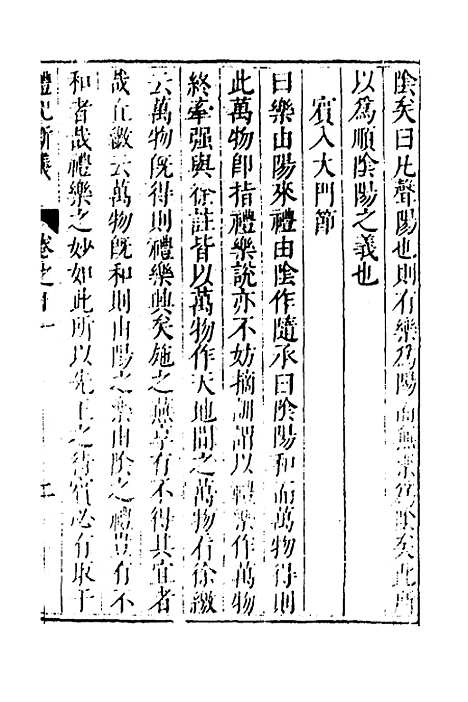 陰矣曰凡聲陽也則有樂爲陽而無樂爲陰矣此所
以爲順陰陽之義也
賓入大門節
曰樂由陽來禮由陰作隨承曰陰陽和而萬物得則
此萬物即指禮樂說亦不妨摘訓謂以禮樂作萬物
終牽强與徐註皆以萬物作天地間之萬物看徐繳
云萬物既得則禮樂興矣施之燕享有不得其宜者
哉丘繳云萬物既和則由陽之樂由陰之禮豈有不
和者哉禮樂之妙如此所以先王之待賓必有取于
禮記新義 卷之十一